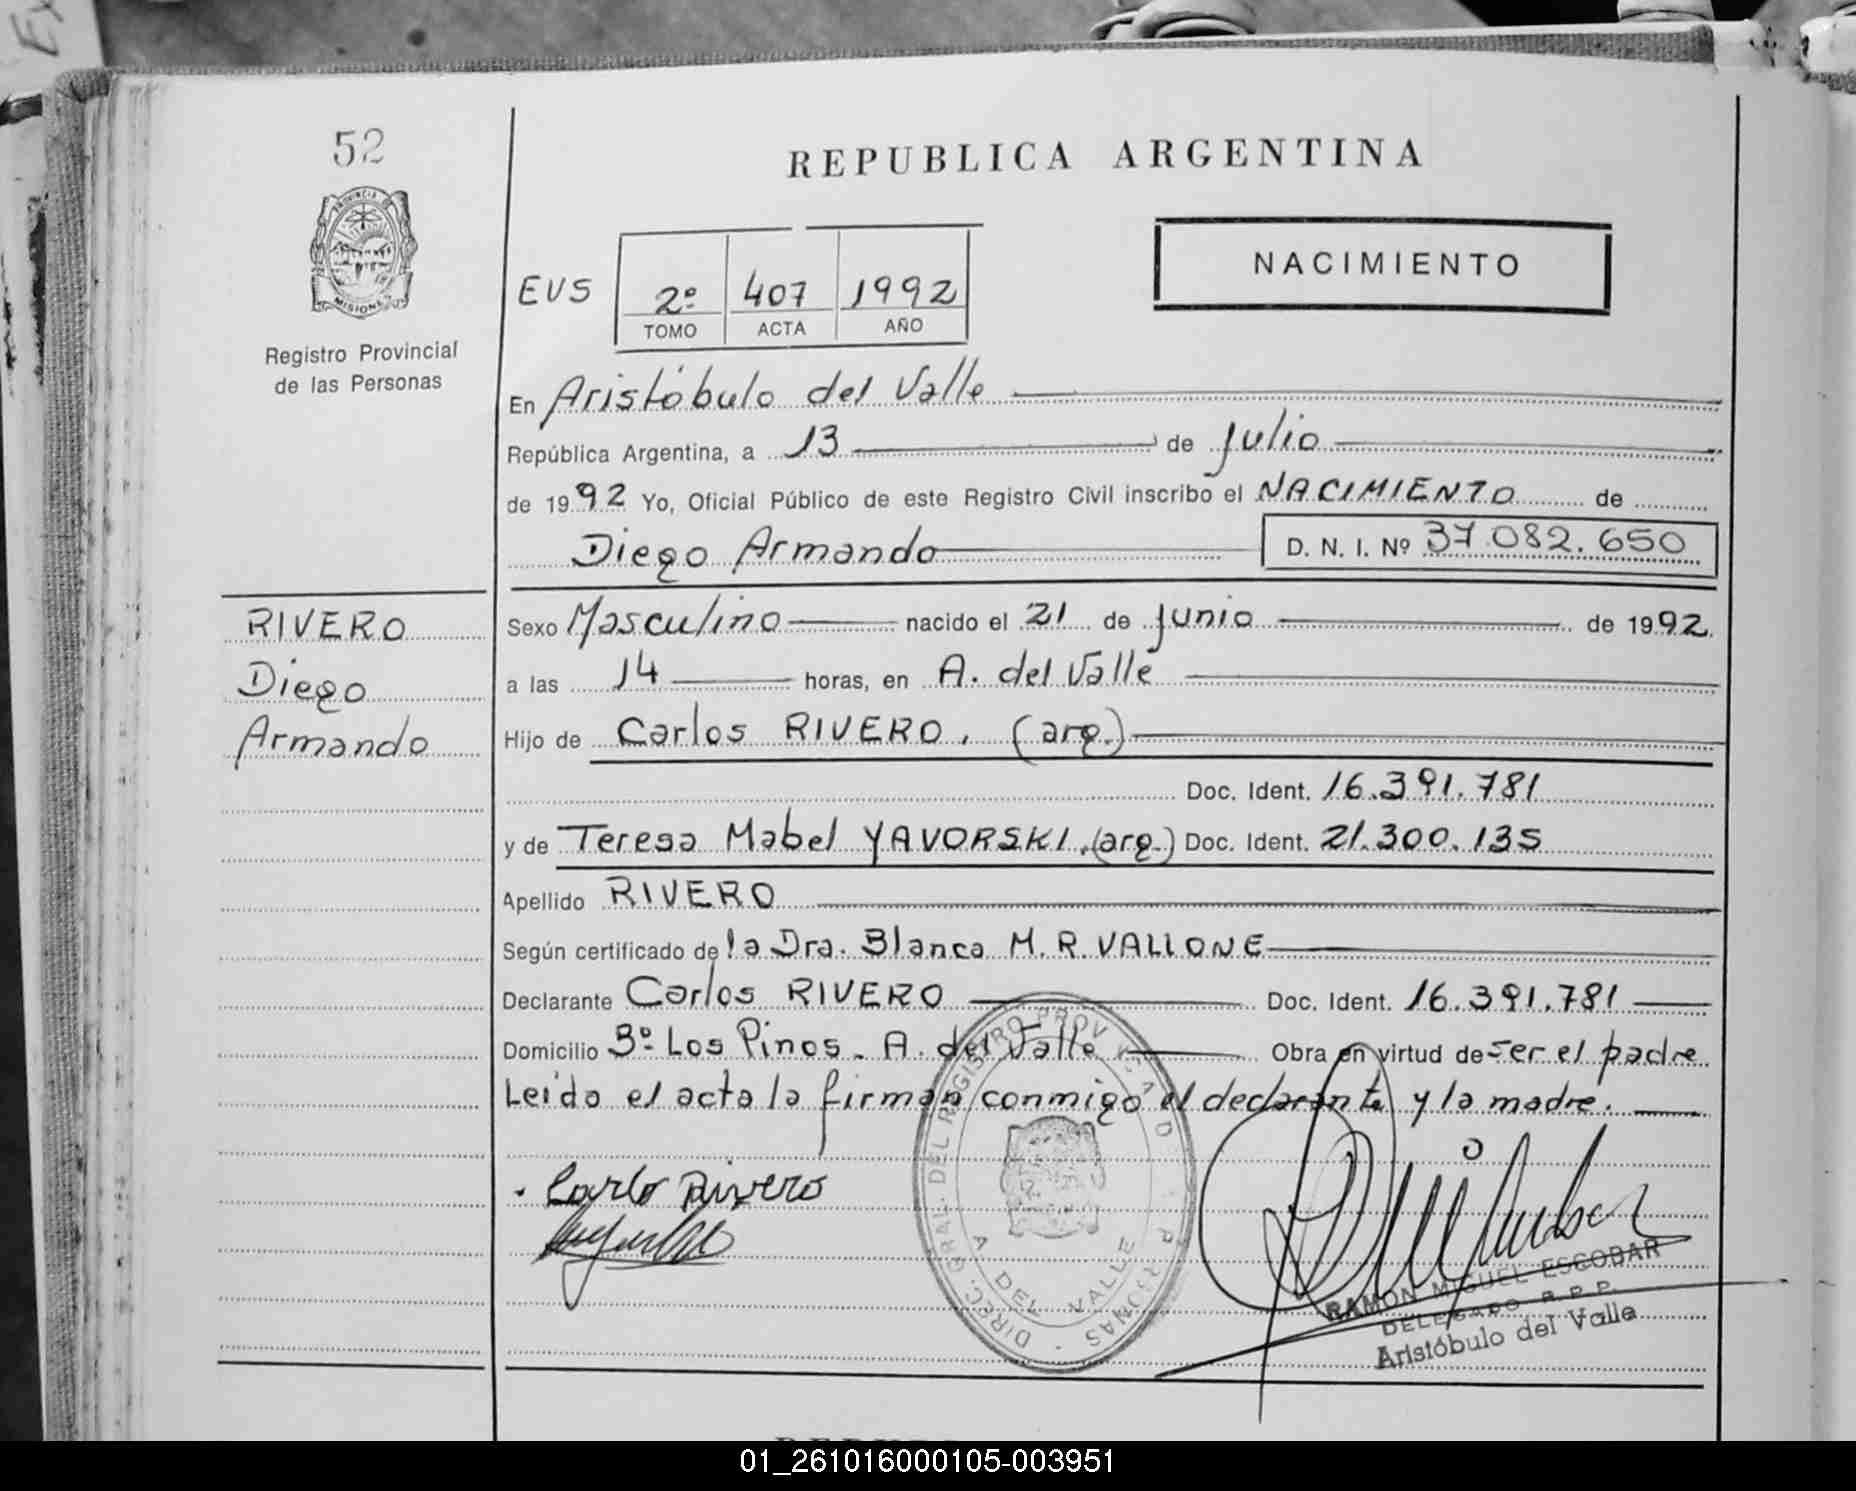 52
REPUBLICA ARGENTINA
PROVINCIA DE
MISIONES
NACIMIENTO
EVS 2º 407 1992
TOMO ACTA AÑO
Registro Provincial
de las Personas
En Aristóbulo del Valle
República Argentina, a 13 de Julio
de 1992 Yo, Oficial Público de este Registro Civil inscribo el NACIMIENTO de
Diego Armando D. N. I. Nº 37.082.650
RIVERO
Diego
Armando
Sexo Masculino nacido el 21 de Junio de 1992.
a las 14 horas, en A. del Valle
Hijo de Carlos RIVERO, (arg.)
Doc. Ident. 16.391.781
y de Teresa Mabel YAVORSKI, (arg.) Doc. Ident. 21.300.135
Apellido RIVERO
Según certificado de la Dra. Blanca M. R. VALLONE
Declarante Carlos RIVERO Doc. Ident. 16.391.781
Domicilio Bº Los Pinos - A. del Valle Obra en virtud de ser el padre
Leído el acta la firman conmigo el declarante y la madre.
Carlos Rivero
DIREC. GRAL. DEL REGISTRO PROV
A DEL VALLE
RAMON MIGUEL ESCOBAR
DELEGADO R.P.P.
Aristóbulo del Valle
01_261016000105-003951